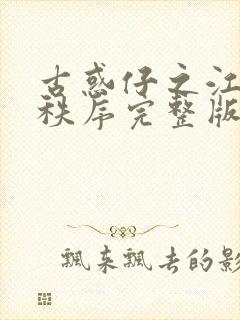 古惑仔之江
秩序完整版
飘来飘去的影